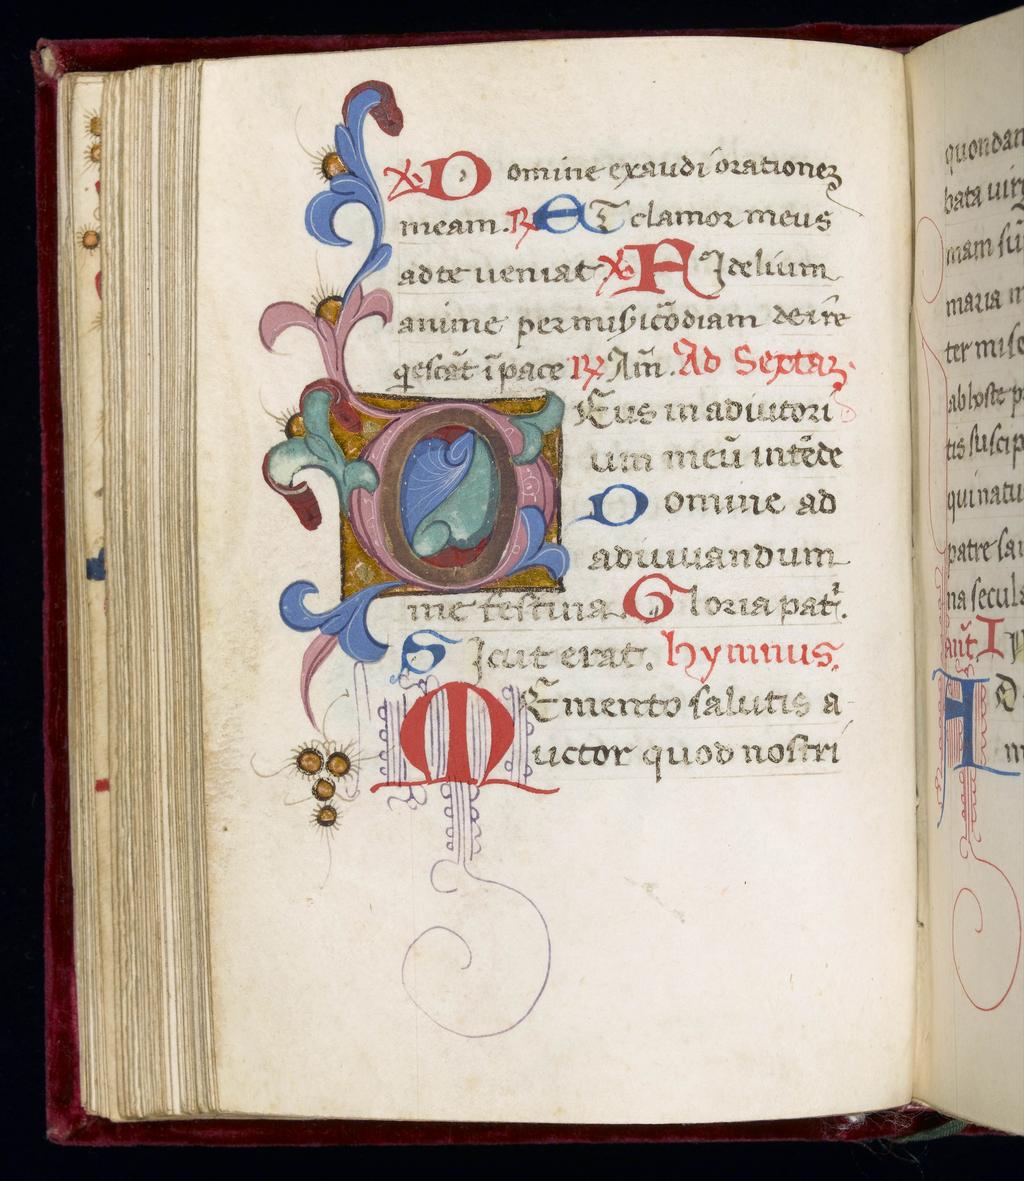 ℣ Domine exaudi orationeꝫ
meam. ℟ ET clamor meus
ad te ueniat ℣ FIdelium
anime per misicōdiam dei re
q̄escāt ī pace ℟ Am̄. Ad Sextaꝫ.
DEus in adiutori
um meū intēde
Domine ad
adiuuandum
me festina Gloria pat̄.
SIcut erat. hymnus.
MEmento salutis a
uctor quod nostri
quondam
bata uirg
mam su
maria m
ter mise
ab hoste p
tis suscip
qui natu
patre sa
na secula
ant̄. I
AD